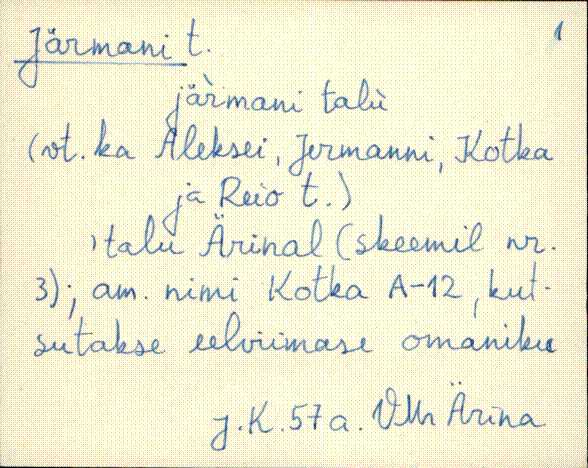 Järmani t.
1
jä̀rmani talù
(vt. ka Aleksei, Jermanni, Kotka
ja Reio t.)
talu Ärinal (skeemil nr.
3); am. nimi Kotka A-12, kut-
sutakse eelviimase omaniku
j. K. 57 a. VMr Ärina